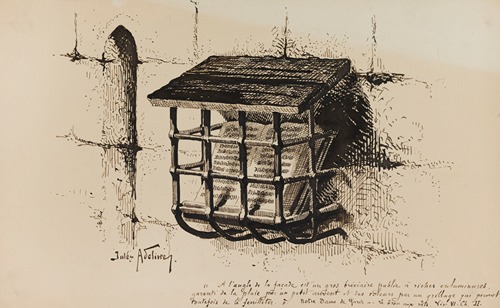 Jules Adeline
« A l'angle de la façade est un gros bréviaire public à riches enluminures,
garanti de la pluie par un petit auvent et des voleurs par un grillage qui permet
toutefois de le feuilleter » Notre Dame de Paris - Liv. VI. Ch. II.